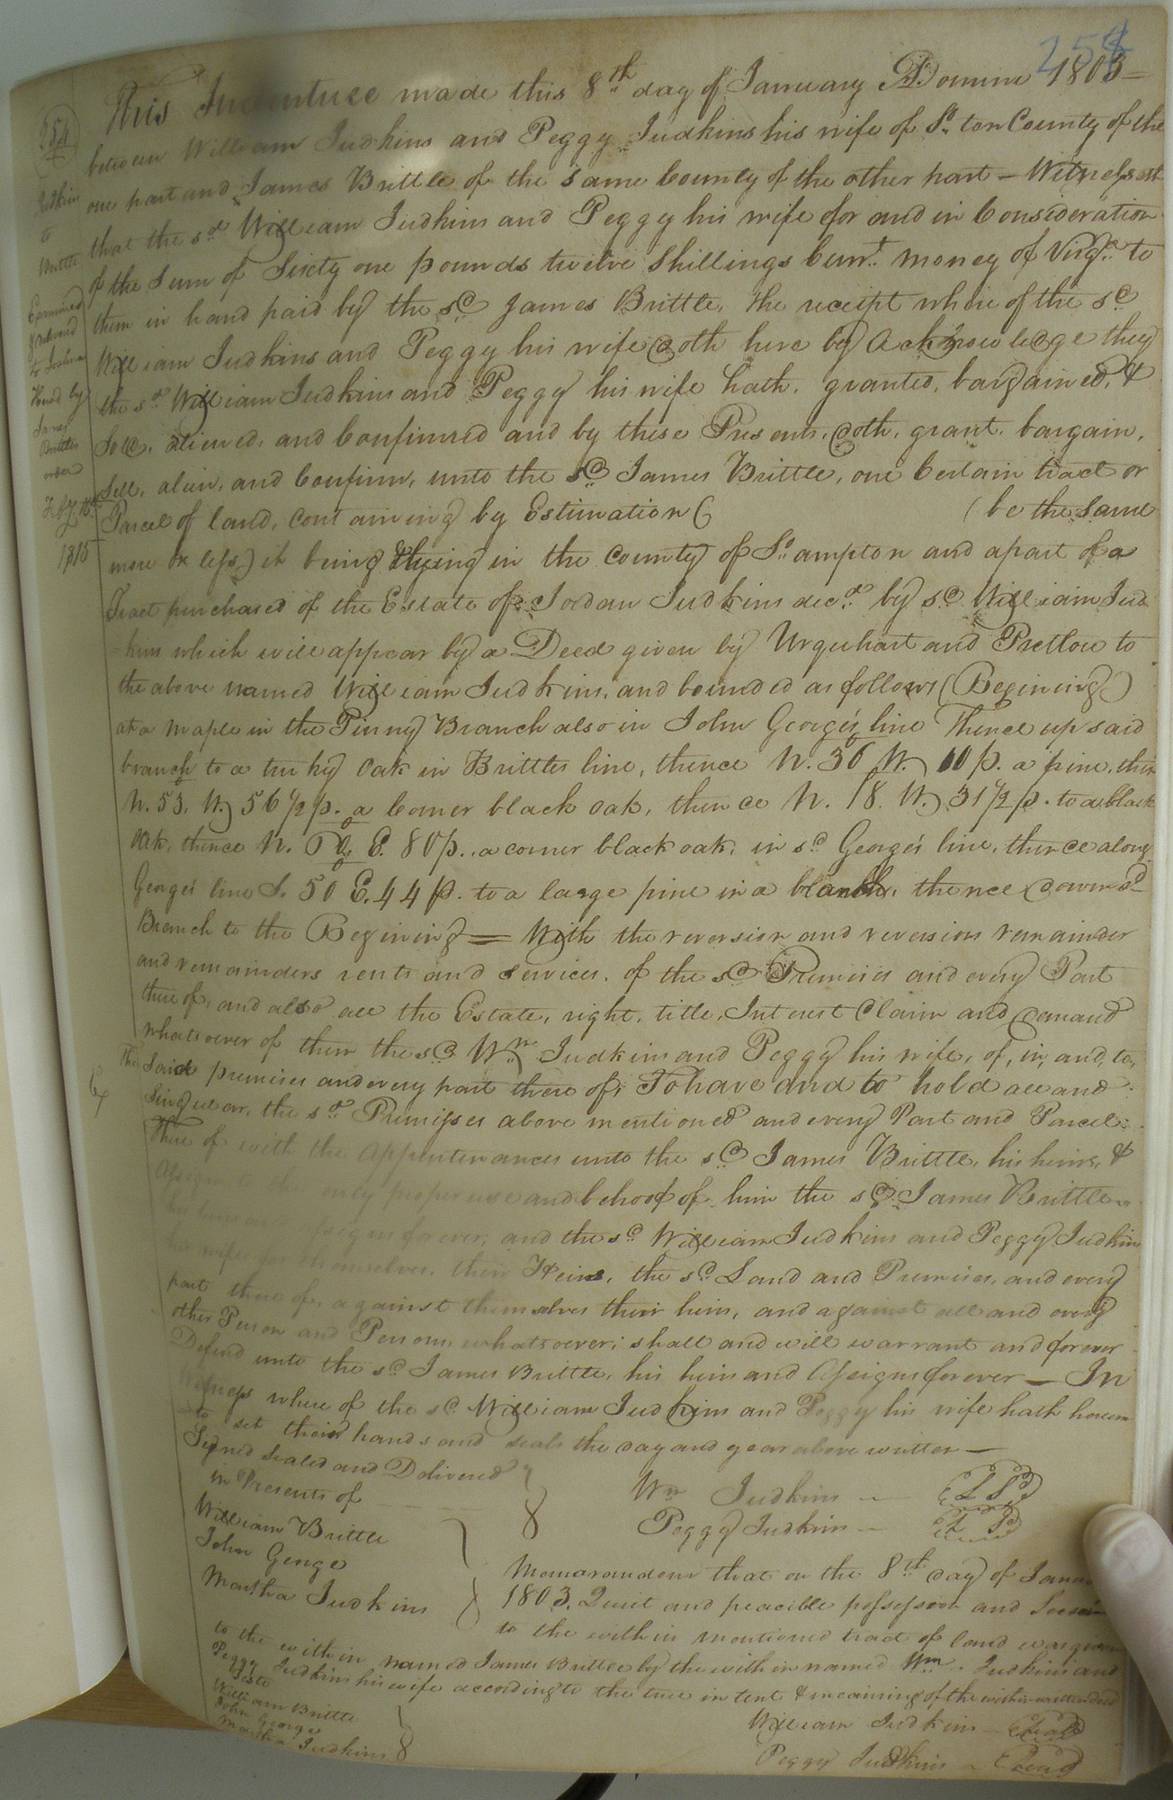 254
254
Judkins
to
Brittle
Examined
& delivered
to Joshua
Hound by
James
Brittles
order
Feby 16th
1815
This Indenture made this 8th day of January ADomini 1803 =
between William Judkins and Peggy Judkins his wife of So. ton County of the
one part and James Brittle of the same County of the other part — Witnesseth
that the sd William Judkins and Peggy his wife for and in Consideration
of the Sum of Sixty one pounds twelve Shillings Curnt. money of Virga. to
them in hand paid by the sd James Brittle, the receipt where of the sd
William Judkins and Peggy his wife doth here by Acknowledge they
the sd William Judkins and Peggy his wife hath. granted, bargained, &
Sold, aliened, and Confirmed and by these Presents, doth, grant. bargain.
Sell, alien, and Confirm, unto the sd James Brittle, one Certain tract or
Parcel of land, containing by Estimation ( ( be the Same
more or less,) it being & lying in the County of So. ampton and apart of a
Tract purchased of the Estate of Jordan Judkins decd by sd William Jud
=kins which will appear by a Deed given by Urquhart and Pretlow to
the above named William Judkins, and bounded as follows (Begining)
at a maple in the Pinny Branch also in John George's line Thence up said
branch to a turky Oak in Brittles line, thence N. 36 W. 10 p. a pine, then
N. 53. W. 56 1/2 p. a Corner black oak, thence N. 18. W. 31 1/2 p. to a black
oak, thence N. E. 80 p. a corner black oak, in sd George's line, thence along
George's line S. 50 E. 44 p. to a large pine in a branch, thence down sd
Branch to the Begining = With the reversion and reversions remainder
and remainders rents and services. of the sd Premises and every Part
there of, and also all the Estate, right, title, Interest Claim and demand
whatsoever of them the sd Wm Judkins and Peggy his wife, of, in, and, to,
The Said premises and every part there of, To have and to hold all and
Singular, the sd Premisses above mentioned and every Part and Parcel
there of with the Appurtenances unto the sd James Brittle, his heirs, &
Assigns to the only proper use and behoof of him the sd James Brittle
his heirs and assigns forever, and the sd William Judkins and Peggy Judkins
his wife for themselves. their Heirs, the sd Land and Premises, and every
part there of, against themselves their heirs, and against all and every
other Person and Persons whatsoever; shall and will warrant and forever
Defend unto the sd James Brittle, his heirs and Assigns forever — In
Witness where of the sd William Judkins and Peggy his wife hath hereun
to set their hands and seals the day and year above written —
Signed Sealed and Delivered
in Presents of
Wm Judkins — (L S)
Peggy Judkins — (L S)
William Brittle
John George
Martha Judkins
Memorandom that on the 8th day of
1803. Quiet and peacible possession and
to the within mentioned tract of land was
to the within named James Brittle by the within named Wm. Judkins and
Peggy Judkins his wife according to the true intent & meaning of the within written deed
Teste
William Brittle
John George
Martha Judkins
William Judkins — (Seal)
Peggy Judkins — (Seal)